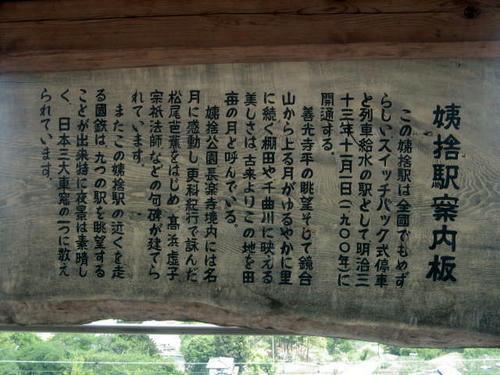 姨捨駅案内板
この姨捨駅は全国でもめず
らしいスイッチバック式停車
と列車給水の駅として明治三
十三年十一月一日(一九〇〇年)に
開通する。
善光寺平の眺望そして鏡台
山から上る月がゆるやかに里
に続く棚田や千曲川に映える
美しさは古来よりこの地を田
毎の月と呼んでいる。
姨捨公園長楽寺境内には名
月に感動し更科紀行で詠んだ
松尾芭蕉をはじめ高浜虚子
宗祇法師などの句碑が建てら
れています。
またこの姨捨駅の近くを走
る国鉄は、九つの駅を眺望する
ことが出来特に夜景は素晴し
く、日本三大車窓の一つに数え
られています。